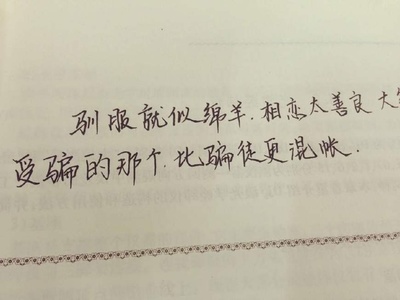 驯服就似绵羊.相恋太善良 大
受骗的那个.比骗徒更混帐.